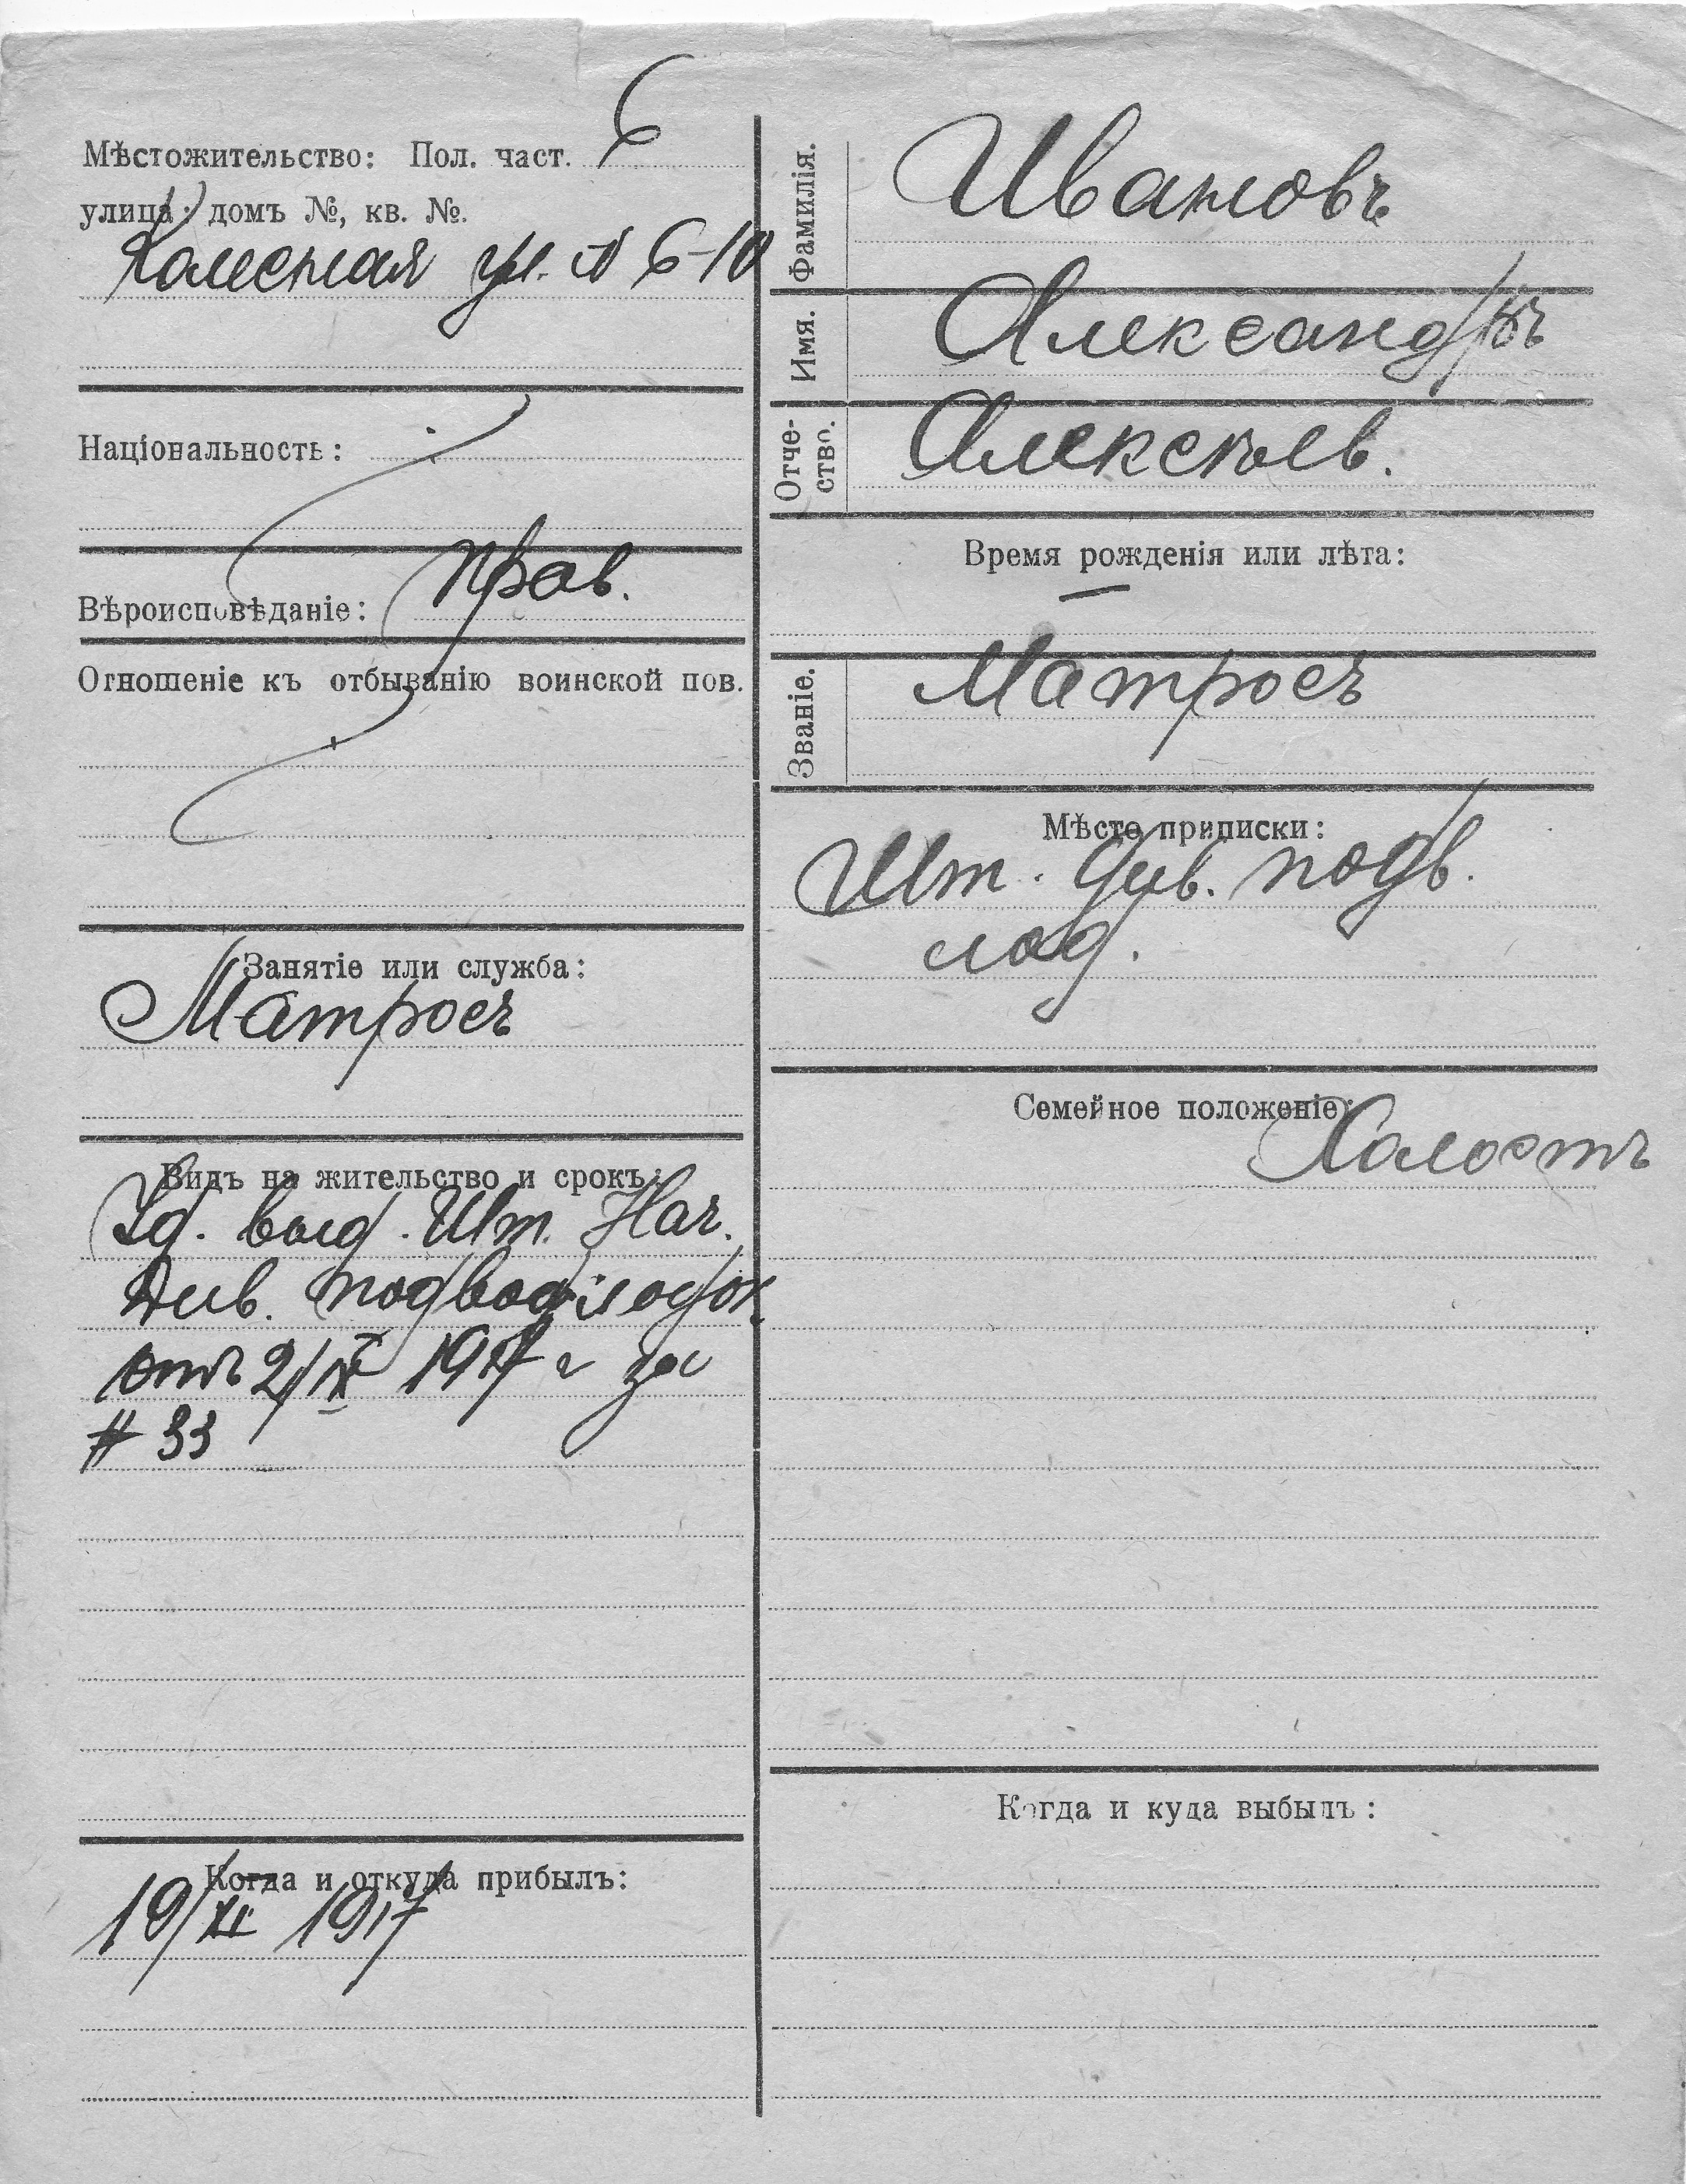 Мѣстожительство: Пол. част. 6
улица, домъ №, кв. №.
ул. № 6-10
Національность:
Вѣроисповѣданіе: Прав.
Отношеніе къ отбыванію воинской пов.
Занятіе или служба:
Матросъ
Видъ на жительство и срокъ:
Уд. выд. Шт. Нач.
Див. подвод. лодок
отъ 2/IX 1917 г за
# 33
Когда и откуда прибылъ:
19/XI 1917
Фамилія. Ивановъ
Имя. Александръ
Отче-
ство. Алексѣев.
Время рожденія или лѣта:
—
Званіе. Матросъ
Мѣсто приписки:
Шт. Див. подв.
лод.
Семейное положеніе:
Холостъ
Когда и куда выбылъ: